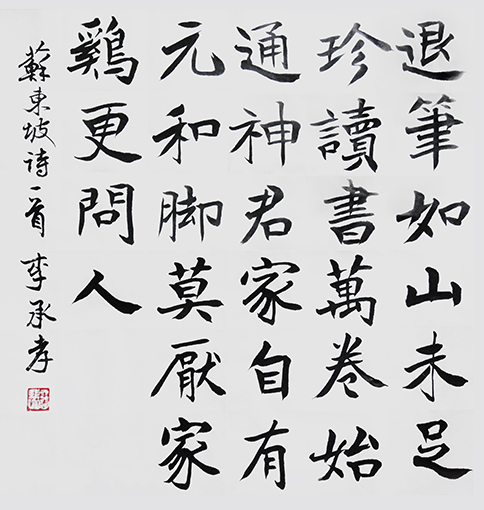 退筆如山未足
珍讀書萬卷始
通神君家自有
元和脚莫厭家
鷄更問人
蘇東坡诗一首 李承孝